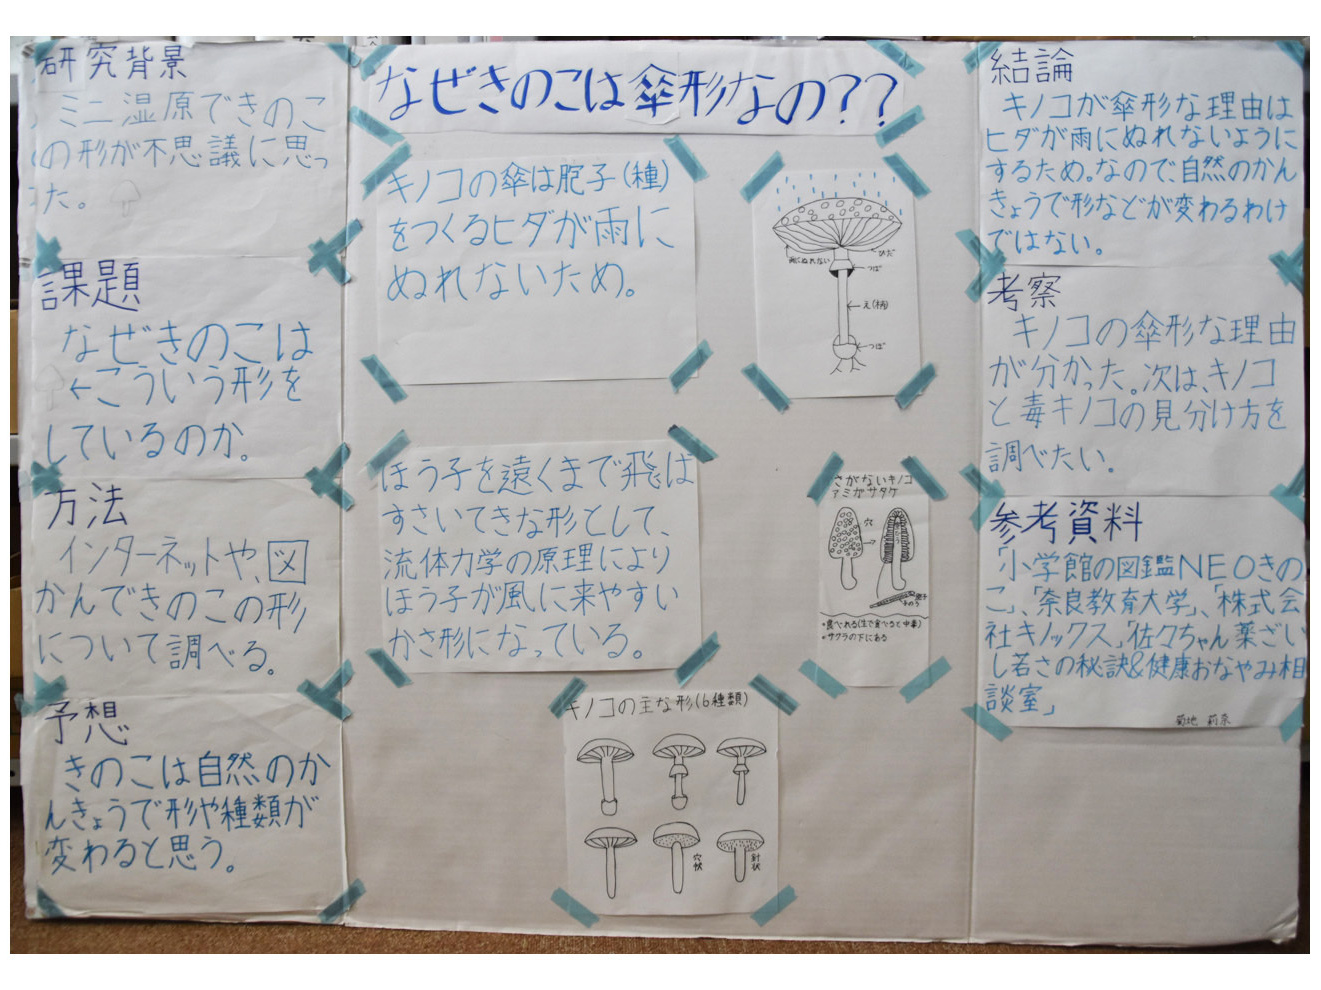 なぜきのこは傘形なの??
研究背景
ミニ湿原できのこ
の形が不思議に思っ
た。
課題
なぜきのこは
←こういう形を
しているのか。
方法
インターネットや、図
かんできのこの形
について調べる。
予想
きのこは自然のか
んきょうで形や種類が
変わると思う。
キノコの傘は胞子(種)
をつくるヒダが雨に
ぬれないため。
雨にぬれない
ひだ
つば
え(柄)
つぼ
ほう子を遠くまで飛ば
すさいてきな形として、
流体力学の原理により
ほう子が風に来やすい
かさ形になっている。
さがないキノコ
アミガサタケ
穴
•食べれる(生で食べると中毒)
•サクラの下にある
キノコの主な形(6種類)
穴状
針状
結論
キノコが傘形な理由は
ヒダが雨にぬれないように
するため。なので、自然のかん
きょうで形などが変わるわけ
ではない。
考察
キノコの傘形な理由
が分かった。次は、キノコ
と毒キノコの見分け方を
調べたい。
参考資料
「小学館の図鑑NEOきの
こ」、「奈良教育大学」、「株式会
社キノックス」「佐々ちゃん薬ざい
し若さの秘訣&健康おなやみ相
談室」
菊地 莉奈